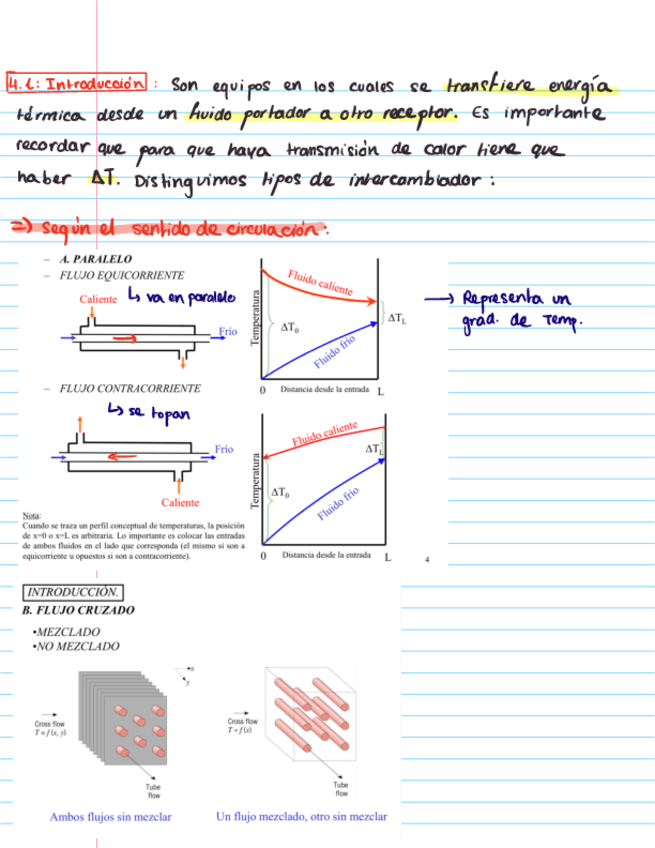 4.1: Introducción: Son equipos en los cuales se transfiere energía
térmica desde un fluido portador a otro receptor. Es importante
recordar que para que haya transmisión de calor tiene que
haber ΔT. Distinguimos tipos de intercambiador:
=) Según el sentido de circulación:
– A. PARALELO
– FLUJO EQUICORRIENTE
↳ va en paralelo
Caliente
Frío
Temperatura
Fluido caliente
ΔT₀
Fluido frío
ΔT_L
0 Distancia desde la entrada L
→ Representa un
grad. de Temp.
– FLUJO CONTRACORRIENTE
↳ se topan
Frío
Caliente
Temperatura
Fluido caliente
ΔT_L
ΔT₀
Fluido frío
0 Distancia desde la entrada L
Nota:
Cuando se traza un perfil conceptual de temperaturas, la posición
de x=0 o x=L es arbitraria. Lo importante es colocar las entradas
de ambos fluidos en el lado que corresponda (el mismo si son a
equicorriente u opuestos si son a contracorriente).
4
INTRODUCCIÓN.
B. FLUJO CRUZADO
•MEZCLADO
•NO MEZCLADO
x
y
Cross flow
T = f(x, y)
Tube
flow
Cross flow
T = f(x)
Tube
flow
Ambos flujos sin mezclar
Un flujo mezclado, otro sin mezclar